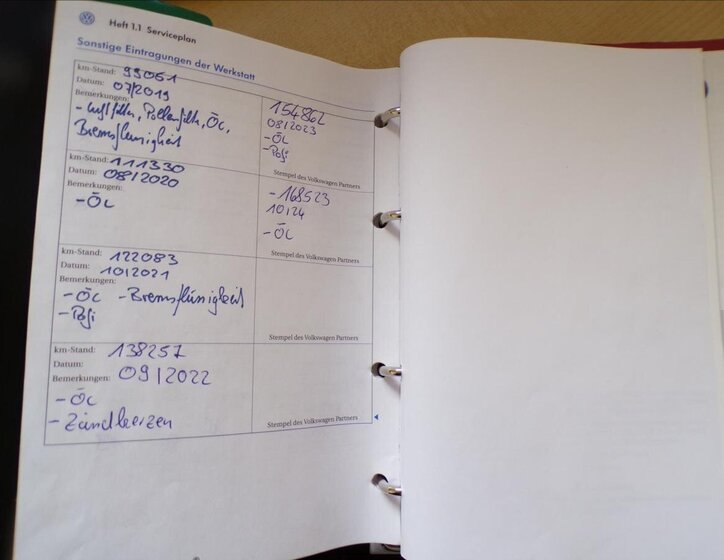 Heft 1.1 Serviceplan
Sonstige Eintragungen der Werkstatt
km-Stand: 99061
Datum: 07/2019
Bemerkungen:
- Luftfilter, Pollenfilter, Öl,
Bremsflüssigkeit
154862
08/2023
- Öl
- Pofi
Stempel des Volkswagen Partners
km-Stand: 111330
Datum: 08/2020
Bemerkungen:
- Öl
- 168523
10/24
- Öl
Stempel des Volkswagen Partners
km-Stand: 122083
Datum: 10/2021
Bemerkungen:
- Öl - Bremsflüssigkeit
- Pofi
Stempel des Volkswagen Partners
km-Stand: 138257
Datum:
Bemerkungen: 09/2022
- Öl
- Zündkerzen
Stempel des Volkswagen Partners